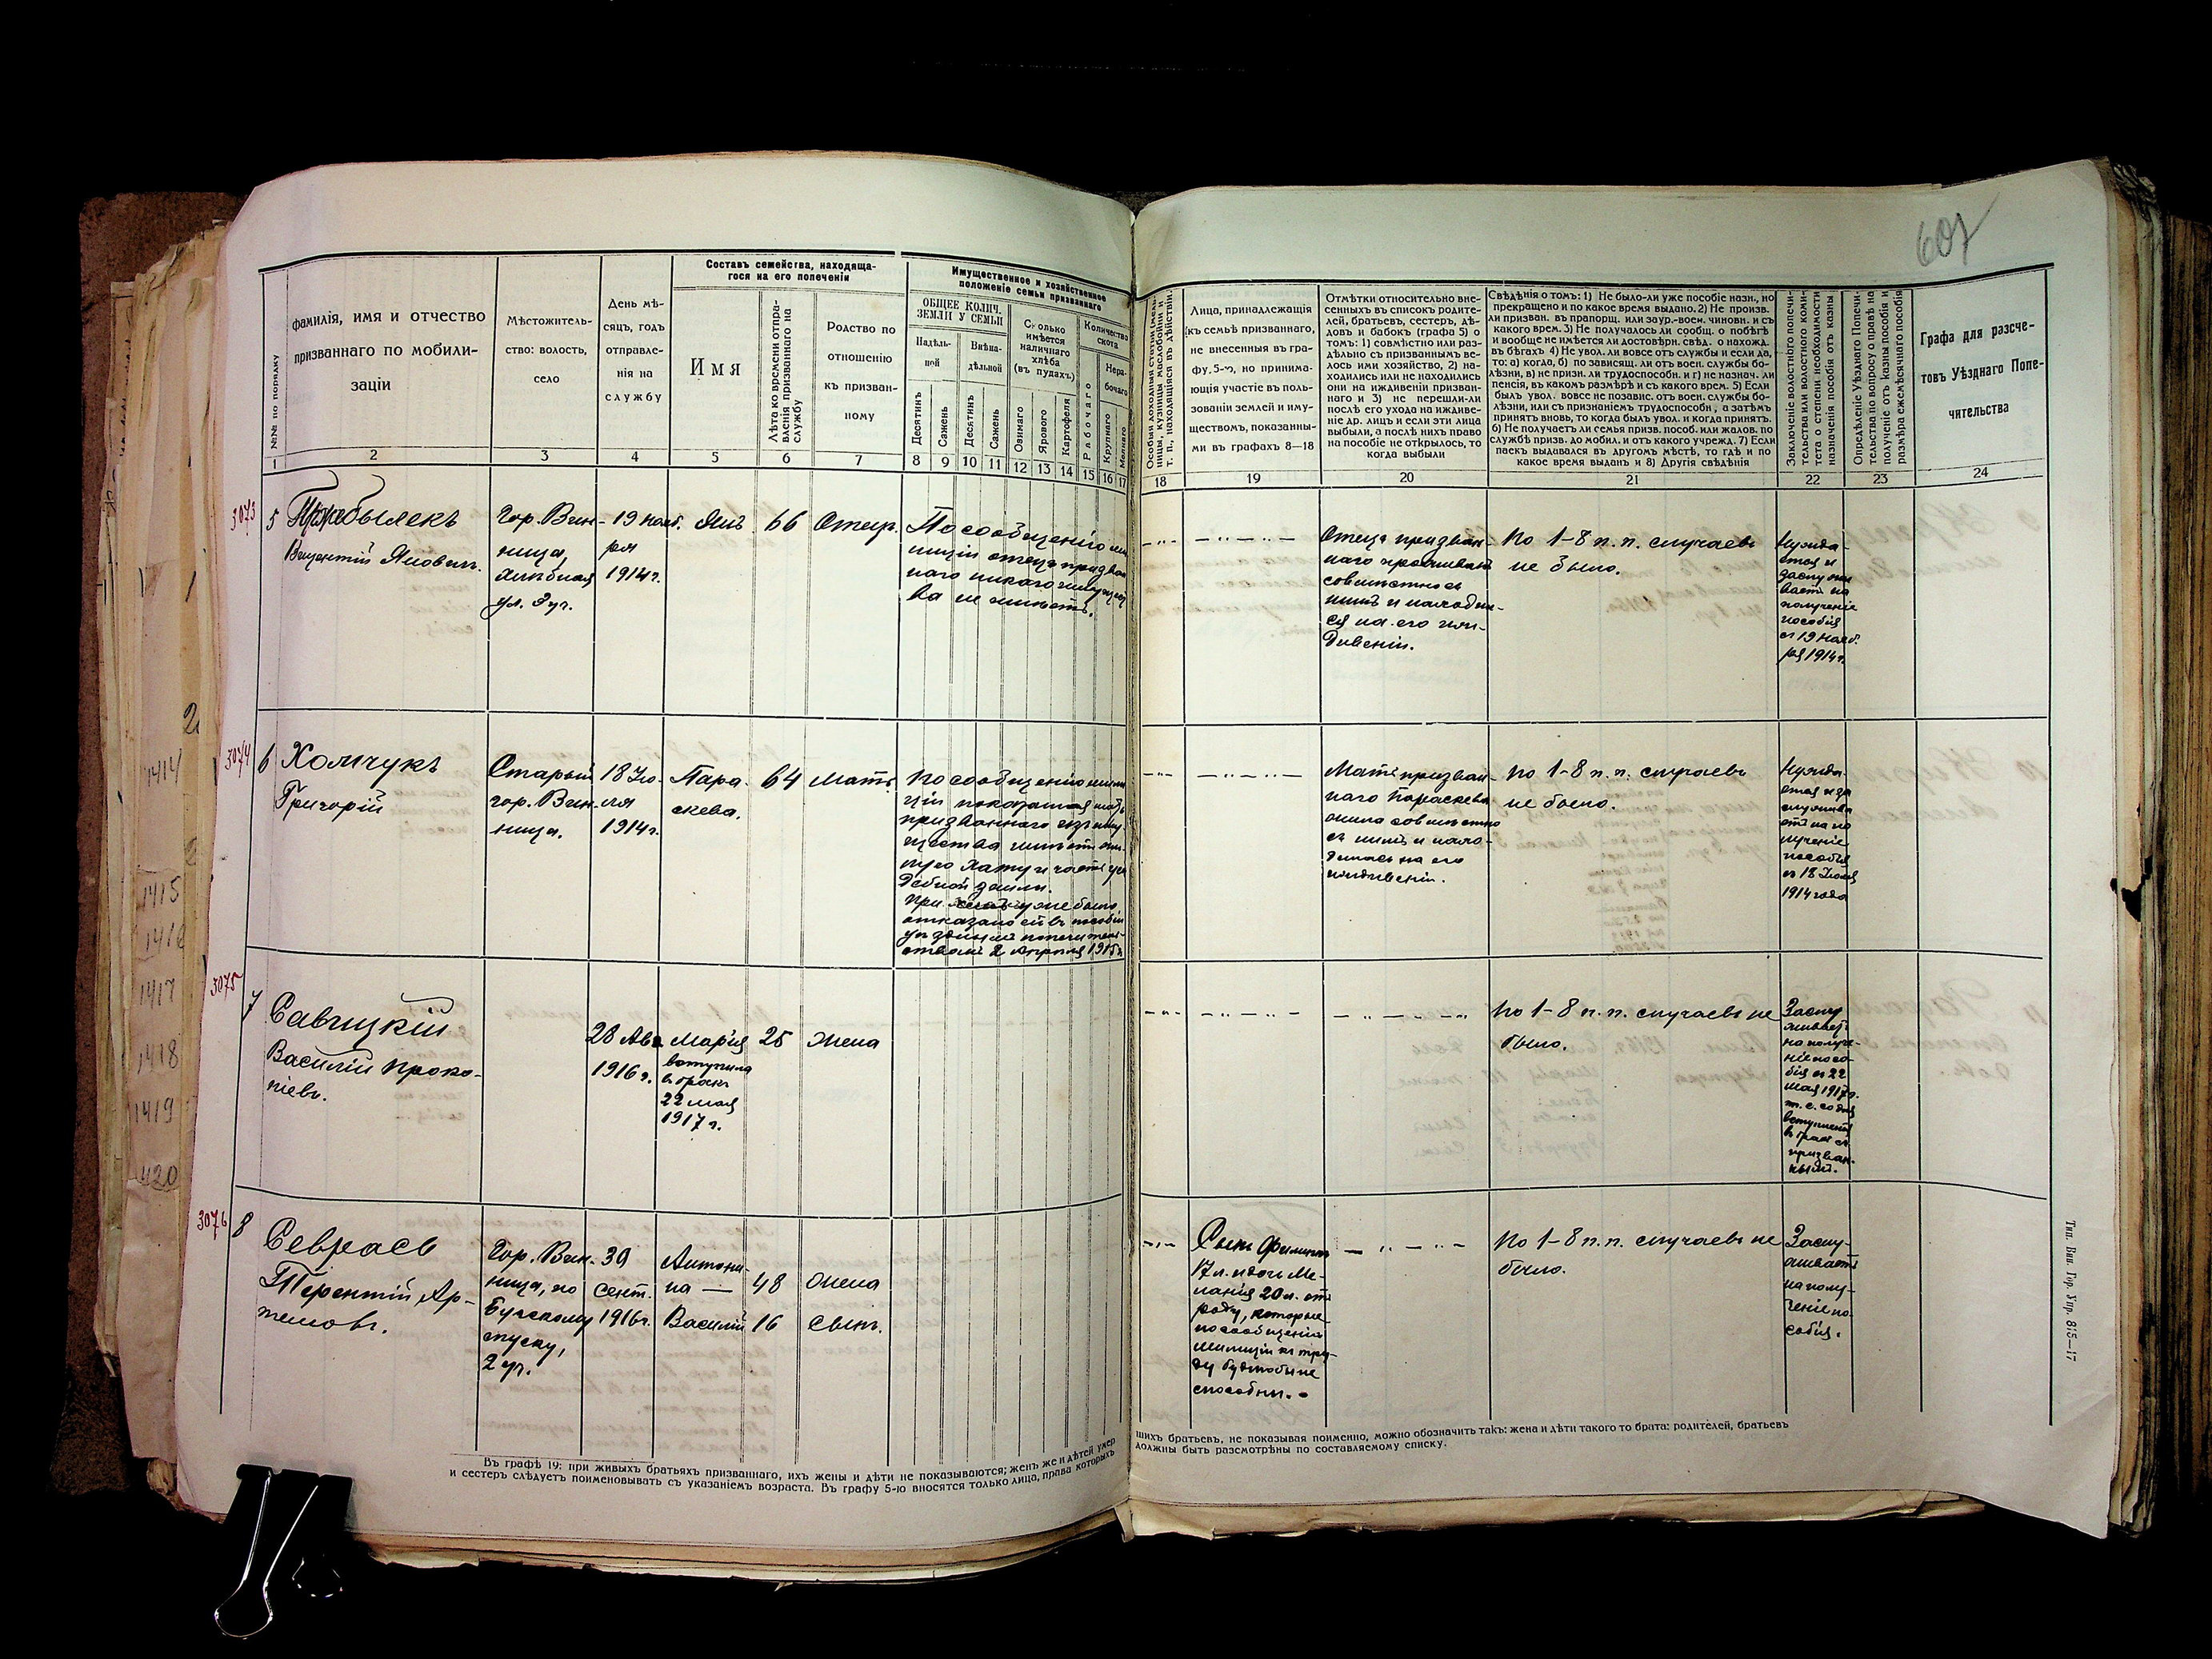 607
Составъ семейства, находяща-
гося на его попеченіи
Имущественное и хозяйственное
положеніе семьи призваннаго
№№ по порядку
фамилія, имя и отчество
призваннаго по мобили-
заціи
Мѣстожитель-
ство: волость,
село
День мѣ-
сяцъ, годъ
отправле-
нія на
службу
Имя
Лѣта ко времени отпра-
вленія призваннаго на
службу
Родство по
отношенію
къ призван-
ному
ОБЩЕЕ КОЛИЧ.
ЗЕМЛИ У СЕМЬИ
Надѣль-
ной
Внѣна-
дѣльной
Десятинъ
Сажень
Десятинъ
Сажень
Сколько
имѣется
наличнаго
хлѣба
(въ пудахъ)
Озимаго
Ярового
Картофеля
Количество
скота
Рабочаго
Нера-
бочаго
Крупнаго
Мелкаго
Лица, принадлежащія
къ семьѣ призваннаго,
не внесенныя въ гра-
фу, 5-ю, но принима-
ющія участіе въ поль-
зованіи землей и иму-
ществомъ, показанны-
ми въ графахъ 8—18
Отмѣтки относительно вне-
сенныхъ въ списокъ родите-
лей, братьевъ, сестеръ, дѣ-
довъ и бабокъ (графа 5) о
томъ: 1) совмѣстно или раз-
дѣльно съ призваннымъ ве-
лось ими хозяйство, 2) на-
ходились или не находились
они на иждивеніи призван-
наго и 3) не перешли-ли
послѣ его ухода на иждиве-
ніе др. лицъ и если эти лица
выбыли, а послѣ нихъ право
на пособіе не открылось, то
когда выбыли
Свѣдѣнія о томъ: 1) Не было-ли уже пособіе назн., но
прекращено и по какое время выдано. 2) Не произв.
ли призван. въ прапорщ. или заур.-воен. чиновн. и съ
какого врем. 3) Не получалось ли сообщ. о побѣгѣ
и вообще не имѣется ли достовѣрн. свѣд. о нахожд.
въ бѣгахъ 4) Не увол. ли вовсе отъ службы и если да,
то: а) когда, б) по зависящ. ли отъ воен. службы бо-
лѣзни, в) не призн. ли трудоспособн. и г) не назнач. ли
пенсія, въ какомъ размѣрѣ и съ какого врем. 5) Если
былъ увол. вовсе не позавис. отъ воен. службы бо-
лѣзни, или съ признаніемъ трудоспособн, а затѣмъ
принятъ вновь, то когда былъ увол. и когда принятъ.
6) Не получаетъ ли семья призв. пособ. или жалов. по
службѣ призв. до мобил. и отъ какого учрежд. 7) Если
паекъ выдавался въ другомъ мѣстѣ, то гдѣ и по
какое время выданъ и 8) Другія свѣдѣнія
Заключеніе волостного попечи-
тельства или волостного коми-
тета о степени необходимости
назначенія пособія отъ казны
Опредѣленіе Уѣзднаго Попечи-
тельства по вопросу о правѣ на
полученіе отъ казны пособія и
размѣра ежемѣсячнаго пособія
Графа для разсче-
товъ Уѣзднаго Попе-
чительства
1 2 3 4 5 6 7 8 9 10 11 12 13 14 15 16 17 18 19 20 21 22 23 24
3073
5
Вицентій Яновъ.
Гор. Вин-
ница,
Хлѣбная
ул. 3 уч.
19 нояб-
ря
1914 г.
Янъ
66
Отецъ.
По сообщенію ми-
лиціи отецъ призван
наго никакого имущест
ва не имѣетъ.
Отецъ призван-
наго проживалъ
совмѣстно съ
нимъ и находил-
ся на его иж-
дивеніи.
по 1-8 п. п. случаевъ
не было.
Нужда-
ется и
заслужи
ваетъ на
полученіе
пособія
съ 19 нояб-
ря 1914 г.
3074
6
Хомчукъ
Григорій
Старый
гор. Вин-
ница.
18 Ію-
ля
1914 г.
Пара-
скева.
64
Мать
по сообщенію мили
ціи показанная мать
призваннаго изъ иму-
щества имѣетъ
хату и часть уса
дебной земли.
При уже было
отказано ей въ пособіи
уѣзднымъ попечитель-
ствомъ 2 апрѣля 1915 г.
Мать призван-
наго Параскева
жила совмѣстно
съ нимъ и нахо-
дилась на его
иждивеніи.
по 1-8 п. п. случаевъ
не было.
Нужда-
ется и за
служива
етъ на по
лученіе
пособія
съ 18 Іюля
1914 года
3075
7
Савицкій
Василій Проко-
піевъ.
28 Авг.
1916 г.
Марія
вступила
въ бракъ
22 мая
1917 г.
25
жена
по 1-8 п. п. случаевъ не
было.
Заслу
живаетъ
на получе-
ніе посо-
бія съ 22
мая 1917 г.
т. е. со дня
вступленія
въ бракъ съ
призван-
нымъ.
3076
8
Терентій Ар-
темовъ.
Гор. Вин-
ница, по
Бугскому
спуску,
2 уч.
30
сент.
1916 г.
Антони-
на — 48 жена
Василій 16 сынъ.
Сынъ Филиппъ
17 л. и дочь Ме-
ланія 20 л. отъ
роду, которые
по сообщенію
милиціи къ тру-
ду будто бы не
способны. -
по 1-8 п. п. случаевъ не
было.
Заслу-
живаетъ
на полу-
ченіе по-
собія.
Въ графѣ 19: при живыхъ братьяхъ призваннаго, ихъ жены и дѣти не показываются; женъ же и дѣтей умер
шихъ братьевъ, не показывая поименно, можно обозначить такъ: жена и дѣти такого то брата: родителей, братьевъ
и сестеръ слѣдуетъ поименовывать съ указаніемъ возраста. Въ графу 5-ю вносятся только лица, права которыхъ
должны быть разсмотрѣны по составляемому списку.
Тип. Вин. Гор. Упр. 815—17
1414
1415
1416
1417
1418
1419
1420